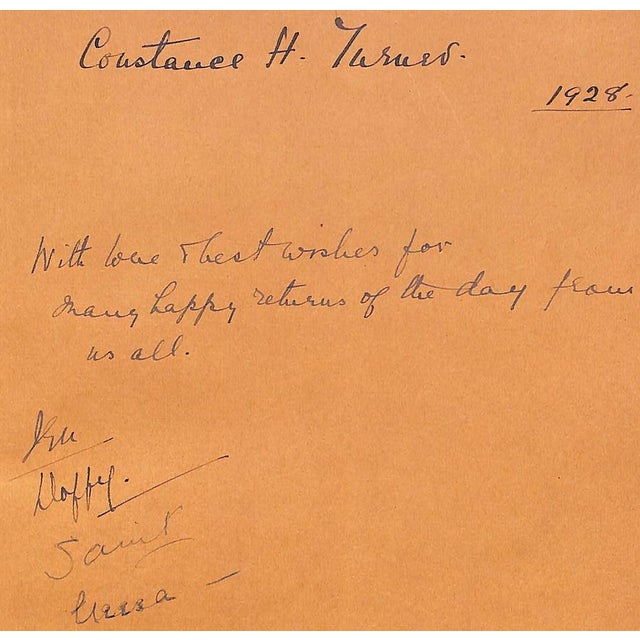 Constance H. Turner.
1928.
With love & best wishes for
many happy returns of the day from
us all.
Daffy.
Saint